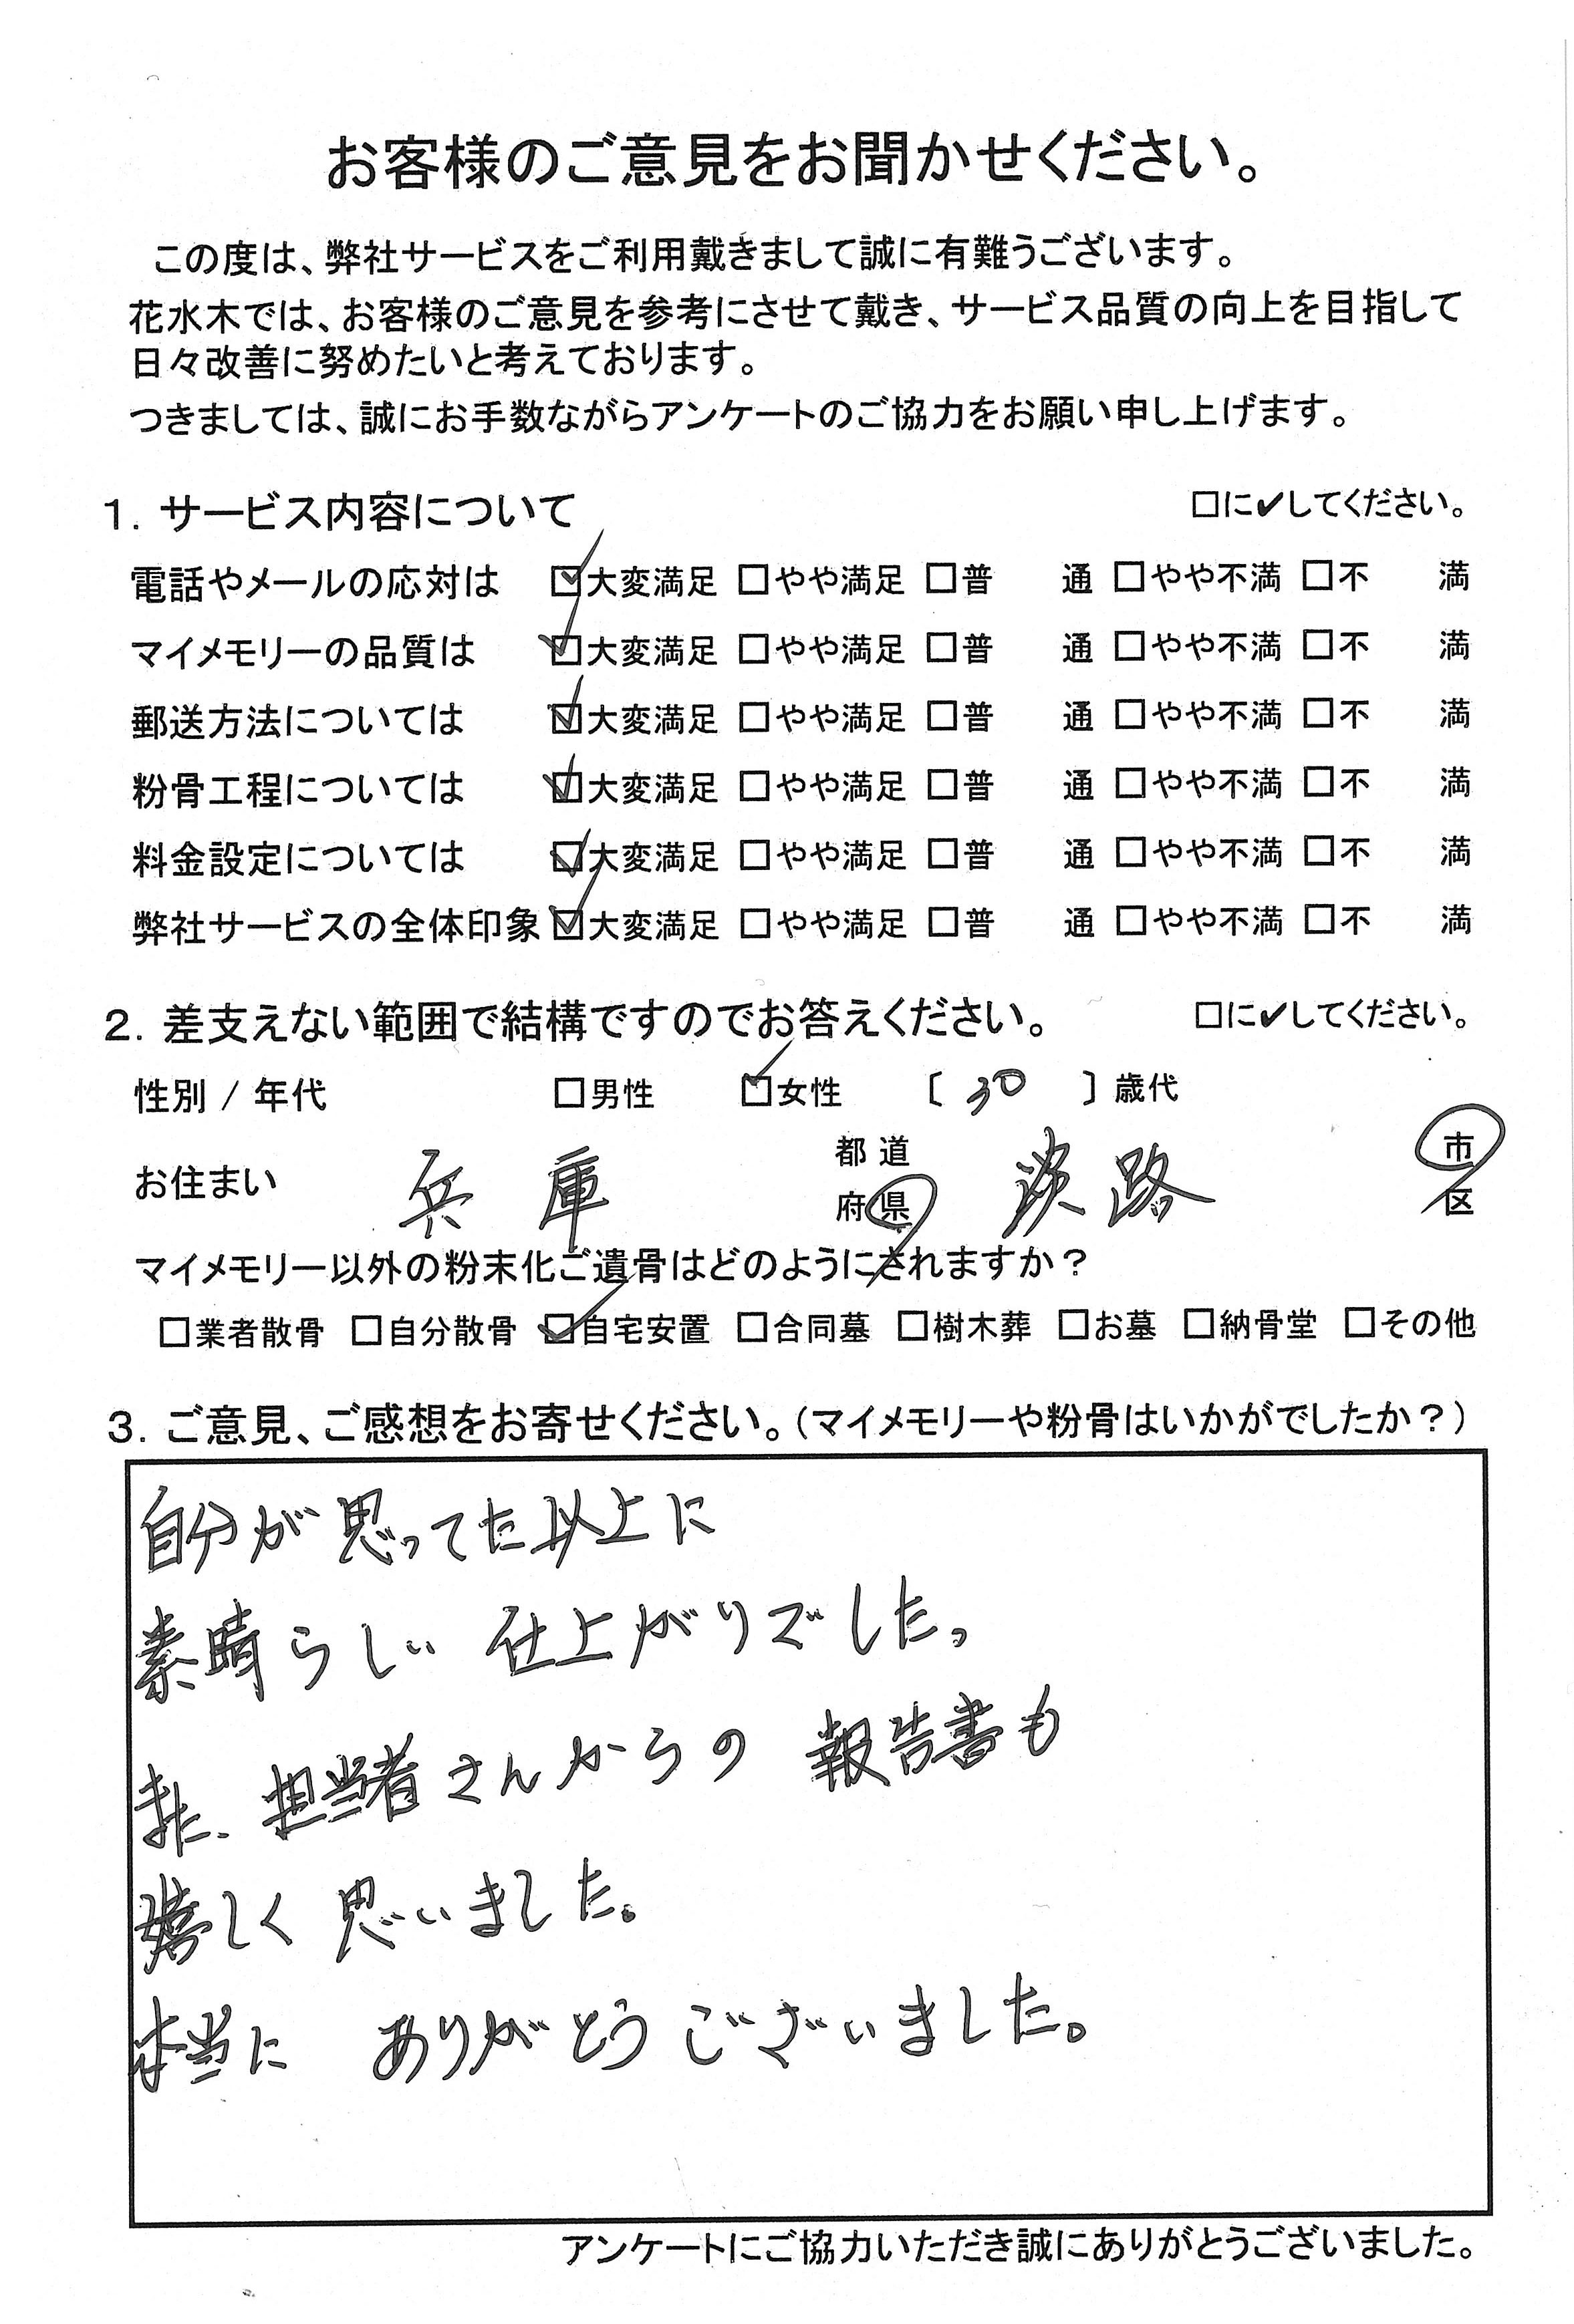 お客様のご意見をお聞かせください。
この度は、弊社サービスをご利用戴きまして誠に有難うございます。
花水木では、お客様のご意見を参考にさせて戴き、サービス品質の向上を目指して
日々改善に努めたいと考えております。
つきましては、誠にお手数ながらアンケートのご協力をお願い申し上げます。
1．サービス内容について　□に✔してください。
電話やメールの応対は ☑大変満足 □やや満足 □普　通 □やや不満 □不　満
マイメモリーの品質は ☑大変満足 □やや満足 □普　通 □やや不満 □不　満
郵送方法については ☑大変満足 □やや満足 □普　通 □やや不満 □不　満
粉骨工程については ☑大変満足 □やや満足 □普　通 □やや不満 □不　満
料金設定については ☑大変満足 □やや満足 □普　通 □やや不満 □不　満
弊社サービスの全体印象 ☑大変満足 □やや満足 □普　通 □やや不満 □不　満
2．差支えない範囲で結構ですのでお答えください。　□に✔してください。
性別 / 年代　□男性　☑女性　〔 30 〕歳代
お住まい　兵庫　都道府県　淡路　市区
マイメモリー以外の粉末化ご遺骨はどのようにされますか？
□業者散骨 □自分散骨 ☑自宅安置 □合同墓 □樹木葬 □お墓 □納骨堂 □その他
3．ご意見、ご感想をお寄せください。（マイメモリーや粉骨はいかがでしたか？）
自分が思ってた以上に
素晴らしい仕上がりでした。
また、担当者さんからの報告書も
嬉しく思いました。
本当に ありがとうございました。
アンケートにご協力いただき誠にありがとうございました。